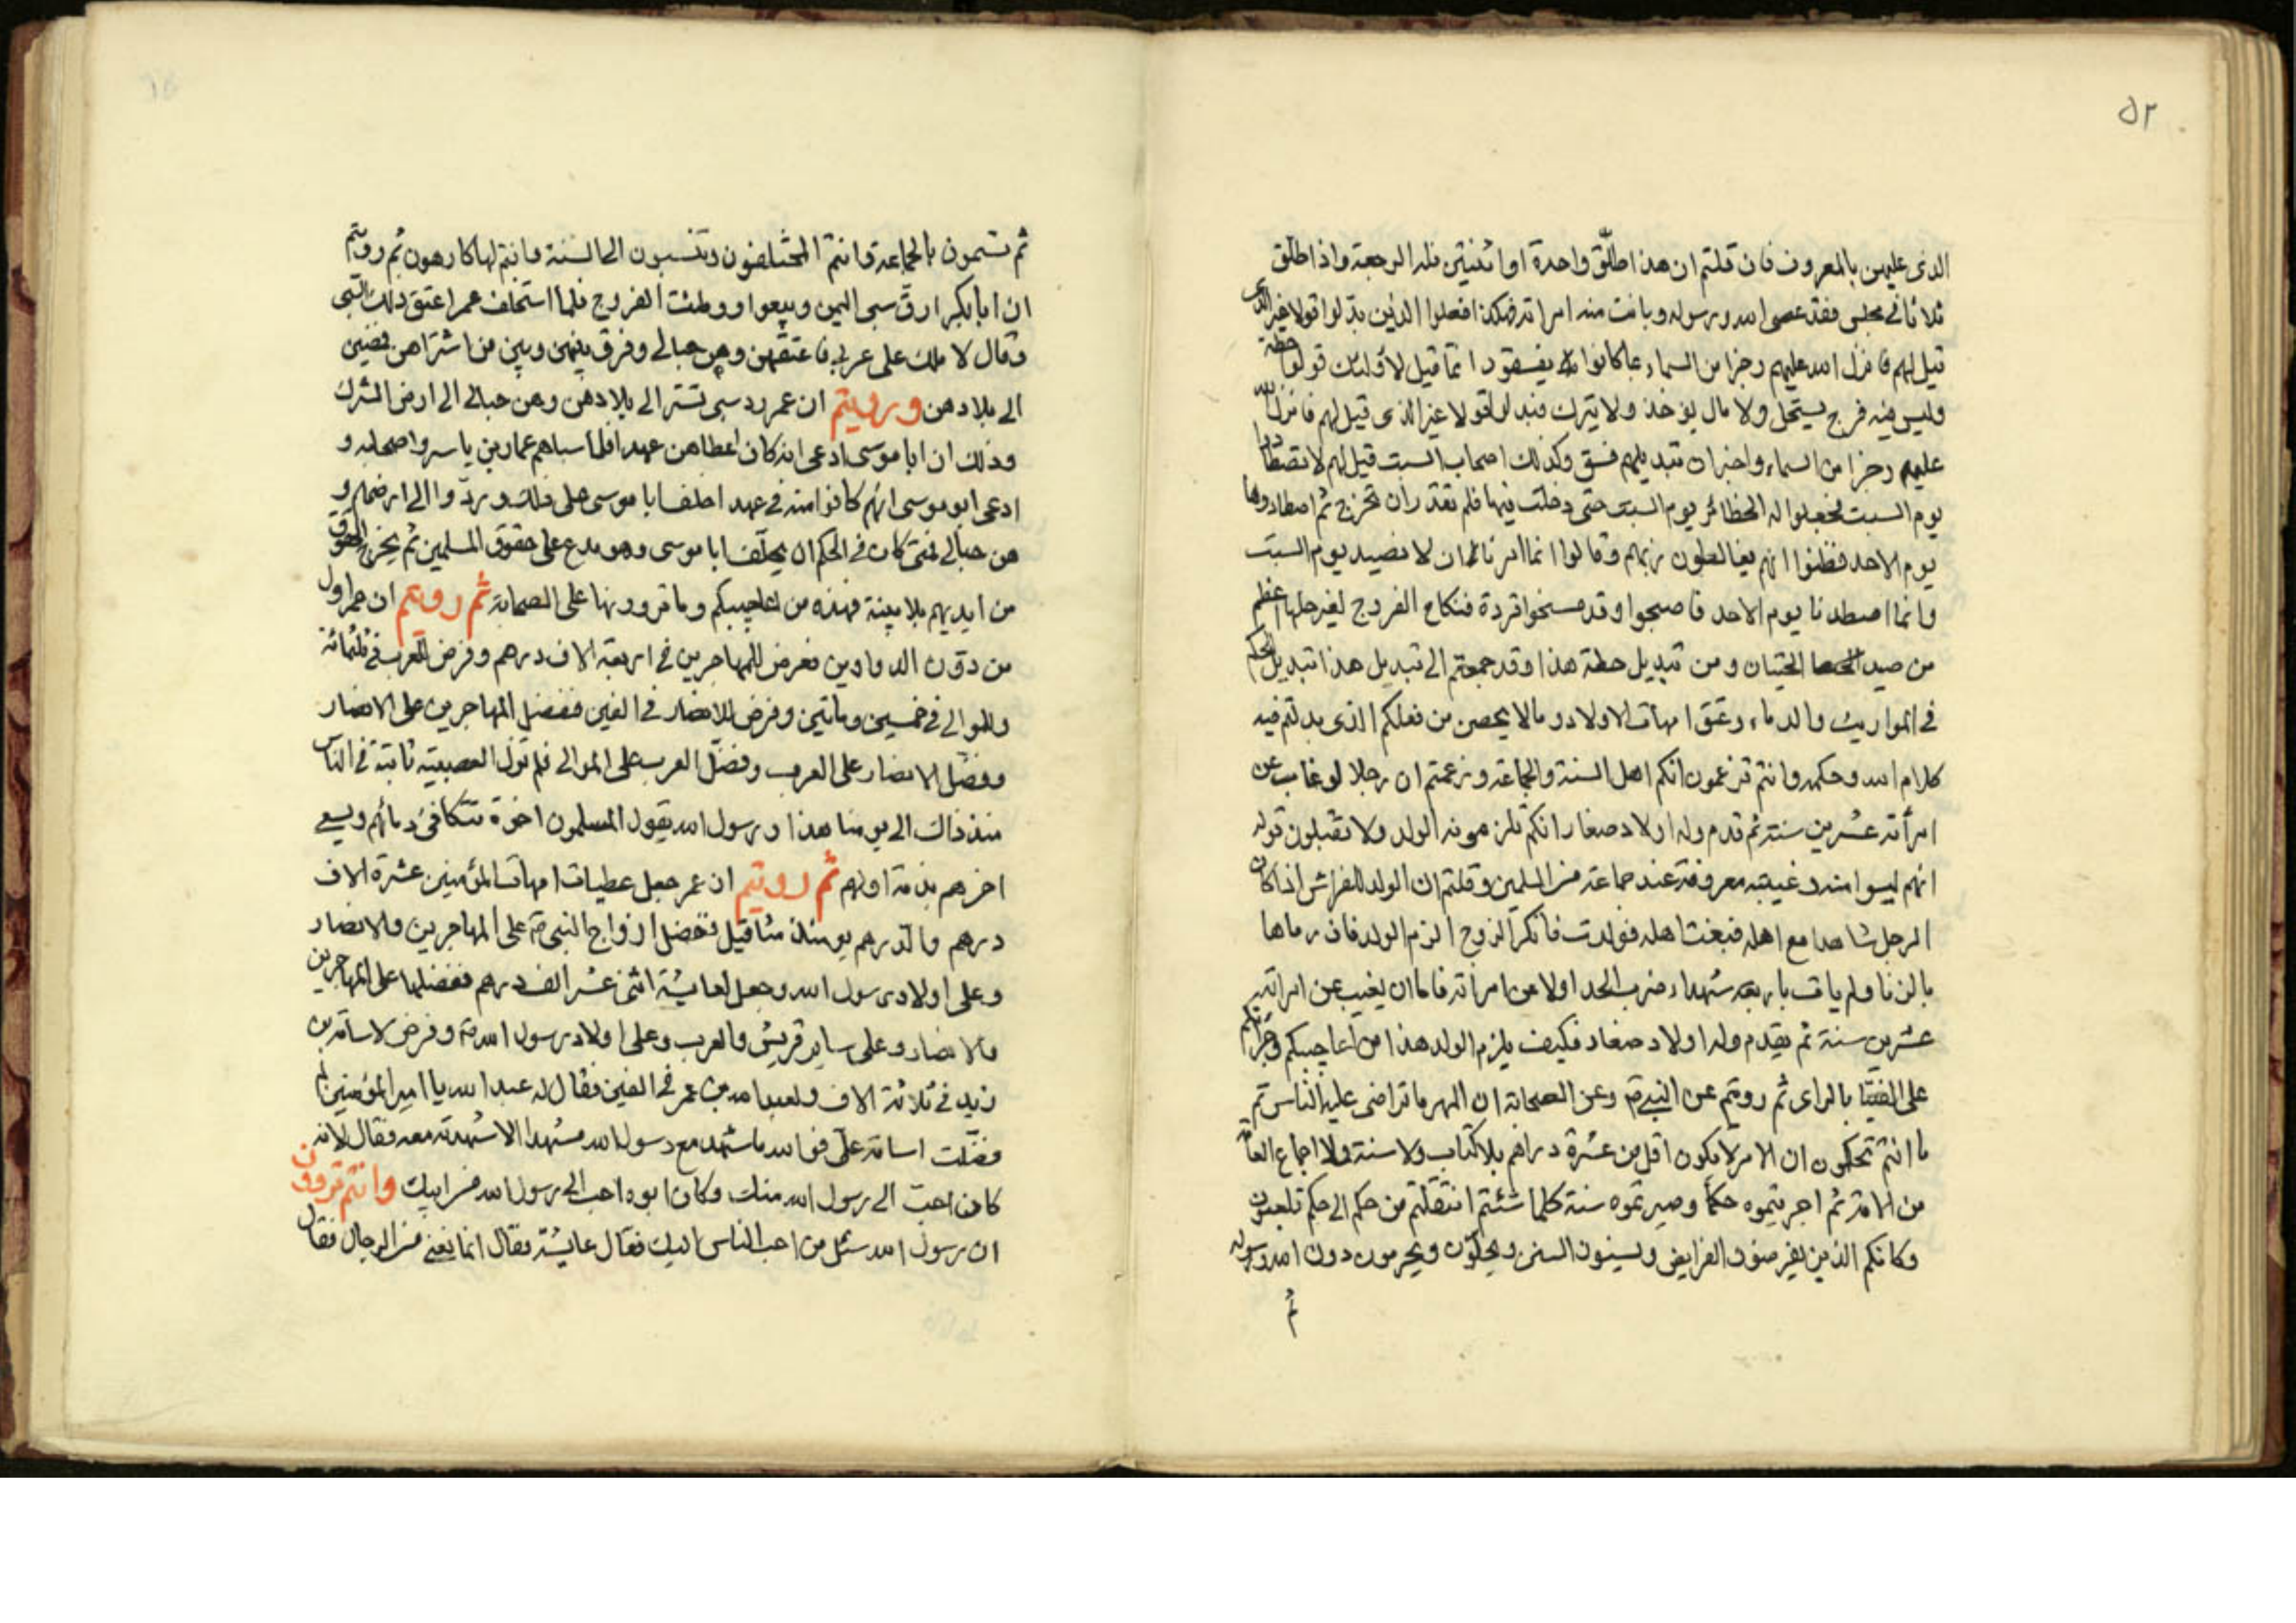 ٥٢
الذى عليهن بالمعروف فان قلتم ان هذا طلّق واحدة او اثنتين فله الرجعة واذا طلق
ثلاثا فى مجلس فقد عصى الله ورسوله وبانت منه امراته فهكذا فعلوا الذين بدّلوا قولا غير الذى
قيل لهم فانزل الله عليهم رجزا من السماء بما كانوا يفسقون وانما قيل لاولئك قولوا حطة
وليس فيه فرج يستحل ولا مال يوخذ ولا يترك فبدلوا قولا غير الذى قيل لهم فانزل الله
عليهم رجزا من السماء واخبر ان تبديلهم فسق وكذلك اصحاب السبت قيل لهم لا تصطادوا
يوم السبت فجعلوا له الحظائر يوم السبت حتى دخلت فيها فلم تقدر ان تخرج ثم اصطادوها
يوم الاحد فظنوا انهم يغالطون ربهم وقالوا انما امرنا ان لا نصيد يوم السبت
وانما اصطدنا يوم الاحد فاصبحوا وقد مسخوا قردة فنكاح الفروج لغير حلها اعظم
من صيد الحيتان ومن تبديل حطة هذا وقد جمعتم الى تبديل هذا تبديل الحكم
فى المواريث والدماء وعتق امهات الاولاد وما لا يحصى من فعلكم الذى بدلتم فيه
كلام الله وحكمه وانتم تزعمون انكم اهل السنة والجماعة وزعمتم ان رجلا لو غاب عن
امرأته عشرين سنة ثم قدم وله اولاد صغار انكم تلزمونه الولد ولا تقبلون قوله
انهم ليسوا منه وغيبته معروفة عند جماعة من المسلمين وقلتم ان الولد للفراش اذا كان
الرجل شاهدا مع اهله فبغت اهله فولدت فانكر الزوج الزم الولد فان رماها
بالزنا ولم يات باربعة شهداء ضرب الحد اولا عن امراته فاما ان يغيب عن امراته
عشرين سنة ثم يقدم وله اولاد صغار فكيف يلزم الولد هذا من اعاجيبكم وجراتكم
على الفتيا بالراى ثم رويتم عن النبى ص وعن الصحابة ان المهر ما تراضى عليه الناس ثم
ما انتم تحكمون ان الامر لا يكون اقل من عشرة دراهم بلا كتاب ولا سنة ولا اجماع العامّة
من الامة ثم اجريتموه حكما وصيرتموه سنة كلما شئتم انتقلتم من حكم الى حكم تلعبون
وكانكم الذين يفرضون الفرايض ويسنون السنن ويحلّون ويحرمون دون الله ورسوله
ثم
ثم تسمون بالجماعة وانتم المختلفون وتنسبون الى السنة وانتم لها كارهون ثم رويتم
ان ابا بكر ارقّ سبى اليمن وبيعوا ووطئت الفروج فلما استخلف عمر اعتق ذلك السبى
وقال لا ملك على عربى فاعتقهن وهن حبالى وفرق بينهن وبين من اشتراهن فمضين
الى بلادهن ورويتم ان عمر رد سبى تستر الى بلادهن وهن حبالى الى ارض الشرك
وذلك ان ابا موسى ادعى انه كان اعطاهن عهدا فلما سباهم عمار بن ياسر واصحابه و
ادعى ابو موسى انهم كانوا منه فى عهد احلف ابا موسى على ذلك وردّوا الى ارضهم و
هن حبالى فمتى كان فى الحكم ان يحلّف ابا موسى وهو مدع على حقوق المسلمين ثم يخرج الحقوق
من ايديهم بلا بينة فهذه من اعاجيبكم وما تروونها على الصحابة ثم رويتم ان عمر اول
من دوّن الدواوين ففرض للمهاجرين فى اربعة الاف درهم وفرض للعرب فى ثلثمائة
وللموالى فى خمسين ومائتين وفرض للانصار فى الفين ففضل المهاجرين على الانصار
وفضّل الانصار على العرب وفضّل العرب على الموالى فلم تزل العصبية ثابتة فى الناس
منذ ذاك الى يومنا هذا ورسول الله يقول المسلمون اخوة تتكافئ دمائهم ويسعى
اخرهم بذمة اولهم ثم رويتم ان عمر جعل عطيات امهات المؤمنين عشرة الاف
درهم والدرهم يومئذ مثاقيل تفضل ازواج النبى ص على المهاجرين والانصار
وعلى اولاد رسول الله وجعل لعايشة اثنى عشر الف درهم ففضلها على المهاجرين
والانصار وعلى ساير قريش والعرب وعلى اولاد رسول الله ص وفرض لاسامة بن
زيد فى ثلاثة الاف ولعبد الله بن عمر فى الفين فقال له عبد الله يا امير المؤمنين لم
فضّلت اسامة علىّ فوالله ما شهد مع رسول الله مشهدا الا شهدته معه فقال لانه
كان احبّ الى رسول الله منك وكان ابوه احب الى رسول الله من ابيك وانتم تروون
ان رسول الله سئل من احب الناس اليك فقال عايشة فقال انما نعنى من الرجال فقال